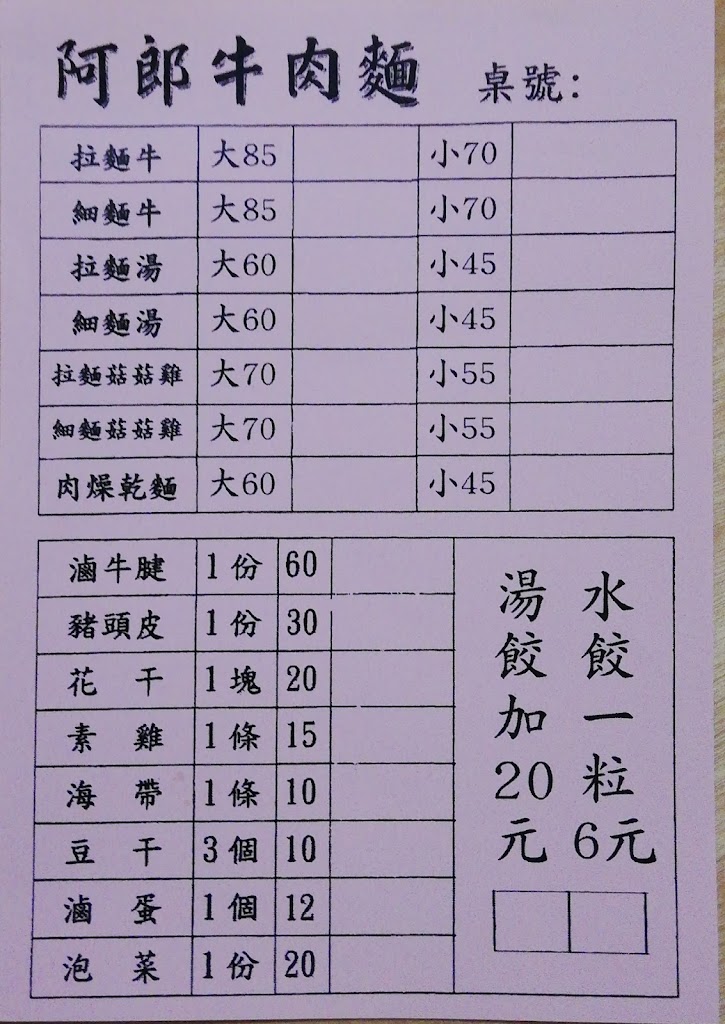 阿郎牛肉麵 桌號:
拉麵牛 大85 小70
細麵牛 大85 小70
拉麵湯 大60 小45
細麵湯 大60 小45
拉麵菇菇雞 大70 小55
細麵菇菇雞 大70 小55
肉燥乾麵 大60 小45
滷牛腱 1份 60
豬頭皮 1份 30
花干 1塊 20
素雞 1條 15
海帶 1條 10
豆干 3個 10
滷蛋 1個 12
泡菜 1份 20
水餃一粒6元
湯餃加20元